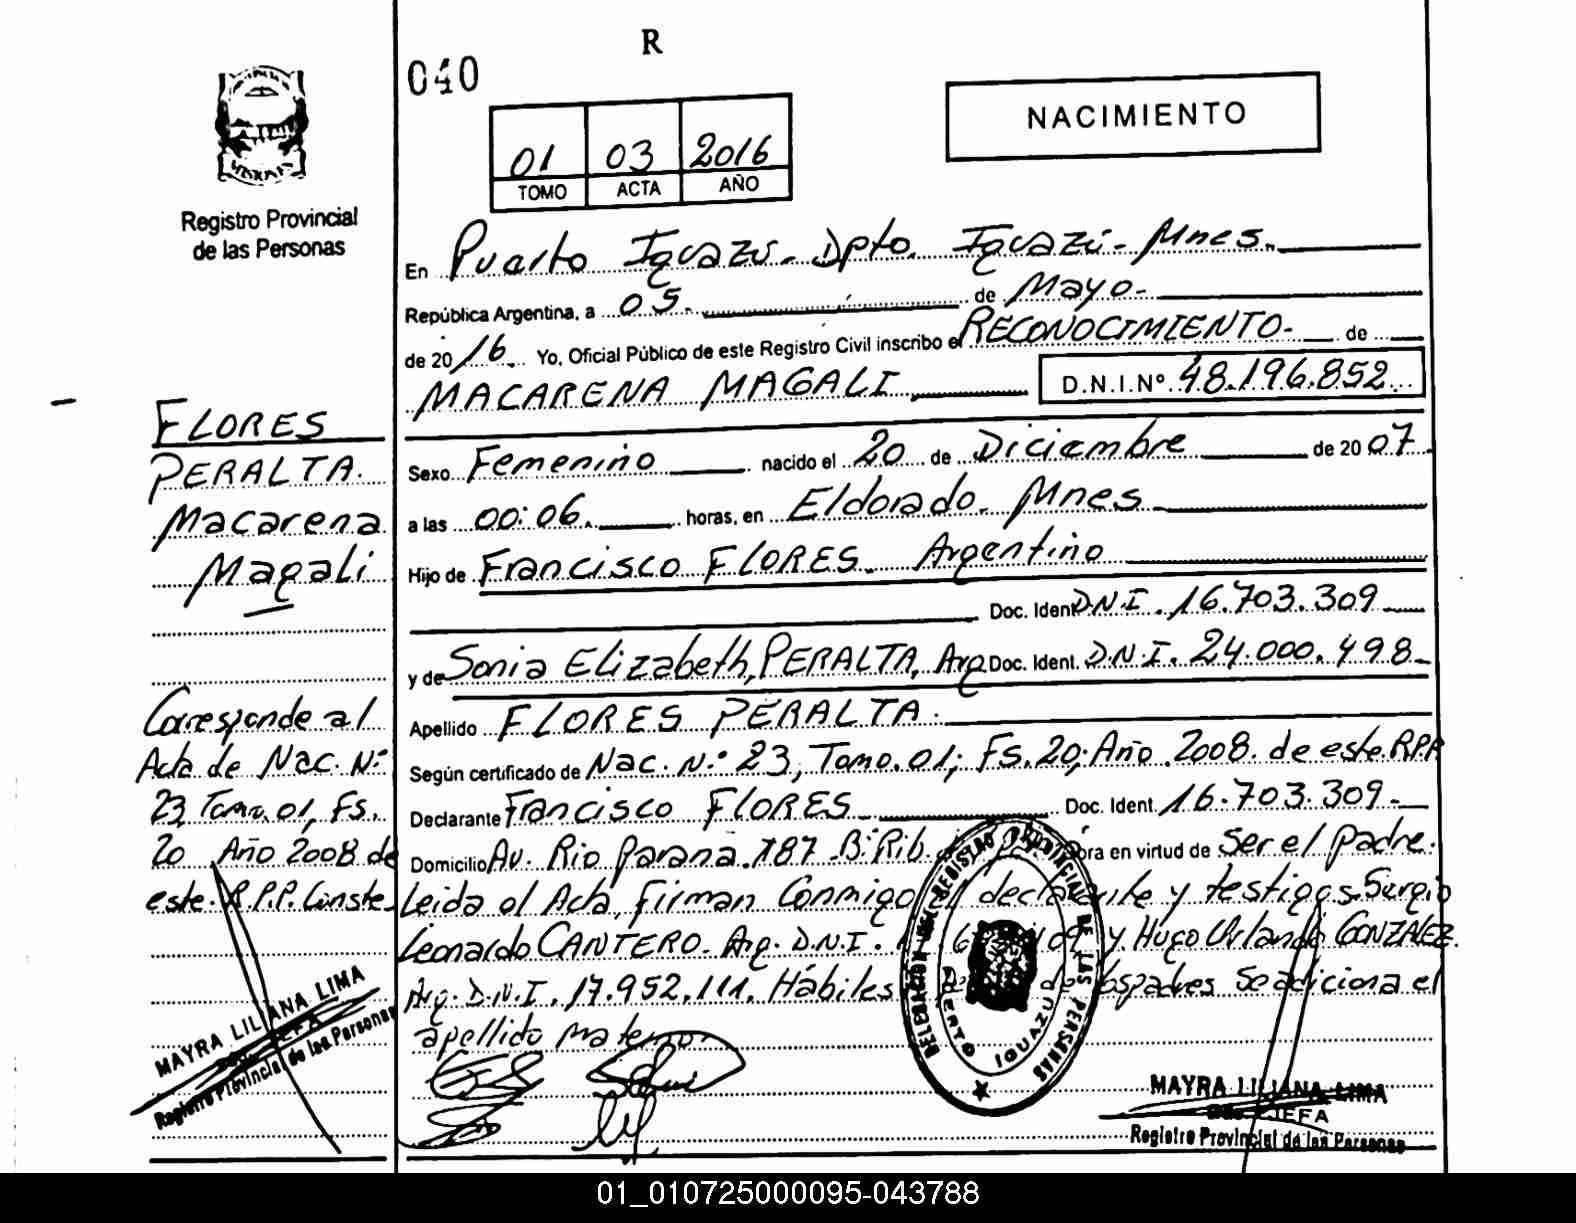 R
040
NACIMIENTO
01 03 2016
TOMO ACTA AÑO
Registro Provincial
de las Personas
En Puerto Iguazú - Dpto. Iguazú - Mnes.
República Argentina, a 05 de Mayo-
de 2016 Yo, Oficial Público de este Registro Civil inscribo el RECONOCIMIENTO- de
MACARENA MAGALI D.N.I.Nº 48.196.852
Sexo Femenino nacido el 20 de Diciembre de 2007
a las 00:06. horas, en Eldorado - Mnes
Hijo de Francisco FLORES - Argentino
Doc. Ident. D.N.I. 16.703.309
y de Sonia Elizabeth, PERALTA, Arg Doc. Ident. D.N.I. 24.000.498-
Apellido FLORES PERALTA.
Según certificado de Nac. N.º 23, Tomo. 01; FS. 20; Año 2008. de este R.P.P.
Declarante Francisco FLORES Doc. Ident. 16.703.309-
Domicilio Av. Rio Parana 787 Bº Rib ora en virtud de Ser el padre.
Leida el Acta, Firman Conmigo el declarante y testigos Sergio
Leonardo CANTERO - Arg. D.N.I. 109 y Hugo Orlando GONZALEZ.
Arg. D.N.I. 17.952.111. Hábiles padres Se adiciona el
apellido materno
FLORES
PERALTA.
Macarena
Magali
Corresponde al
Acta de Nac. Nº
23, Tomo. 01, FS.
20 Año 2008 de
este R.P.P. Conste
MAYRA LILIANA LIMA
JEFA
Registro Provincial de las Personas
DELEGACION REGISTRO PROVINCIAL DE LAS PERSONAS
PUERTO IGUAZU
MAYRA LILIANA LIMA
JEFA
Registro Provincial de las Personas
01_010725000095-043788